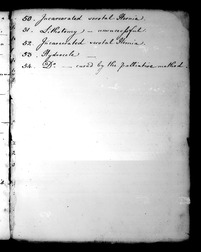 50. Incarcerated scrotal Hernia.
51. Lithotomy – unsuccessful
52. Incarcerated scrotal Hernia.
53. Hydrocele —
54. Do — cured by the palliative method.